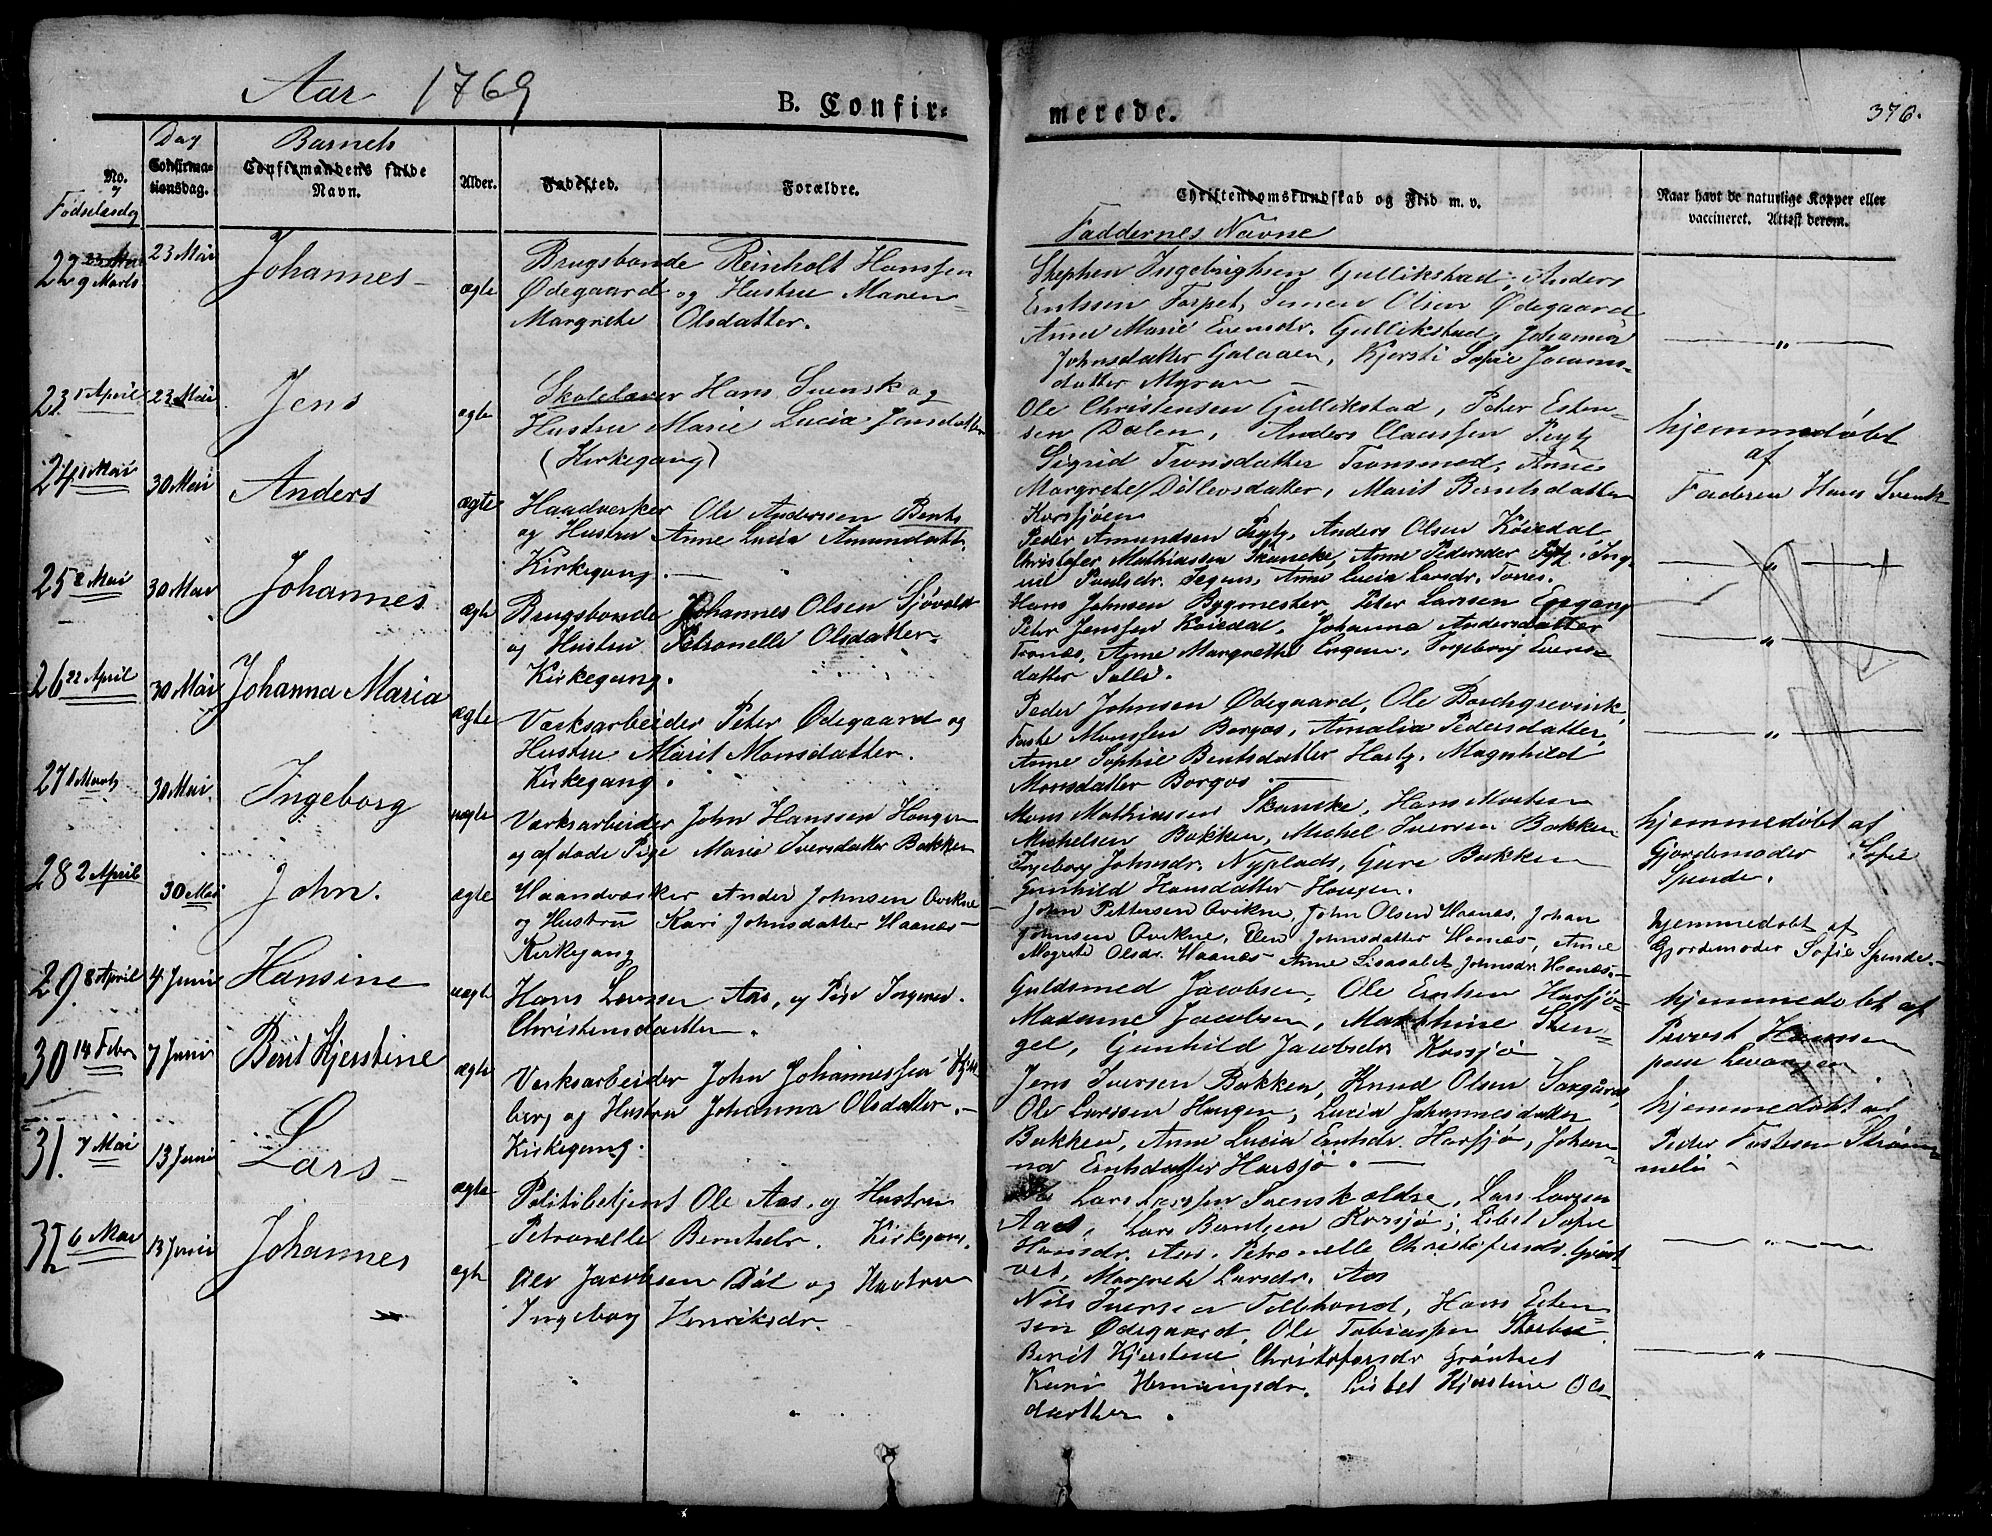 Aar 1769
B. Confir-
merede.
376.
Dag
Barnets
No.
Confirma-
tionsdag.
Confirmandens fulde
Navn.
Alder.
Fødested.
Forældre.
Christendomskundskab og Flid m. v.
Naar havt de naturlige Kopper eller
vaccineret. Attest derom.
Fødselsdag
Faddernes Navne
22 9 Marts 23 Mai Johannes - ægte
Brugsbonde Reinholt Hanssen
Ødegaard og Hustru Maren
Margrete Olsdatter.
Stephen Ingebrigtsen Gullikstad, Anders
Entssen Torpet, Simen Olsen Ødegaard
Anne Marie Evensdr. Gullikstad, Johanna
Johnsdatter Galaaen, Kjersti Sofie
datter Myran -
23. 1 April 23 Mai Jens ægte
Skolelærer Hans Svensk og
Hustru Marie Lucia Jensdatter
(Kirkegang)
Ole Christensen Gullikstad, Peter Esten-
sen Dalen, Anders Claussen
Sigrid Tronsdatter Tronsmed, Anne
Margrete Ditlevsdatter, Marit Berntsdatter
Korssjøen
hjemmedøbt
af
Faderen Hans Svensk
24 1 Mai 30 Mai Anders ægte
Haandværker Ole Anderssen Bents
og Hustru Anne Lucia Amundsdatt.
Kirkegang. -
Peder Amundsen Anders Olsen Koiedal,
Christofer Mathiassen Skancke, Anne Pedersdr
Paulsdr. Anne Lucia Larsdr. Tones.
25 2 Mai 30 Mai Johannes ægte
Brugsbonde Johannes Olsen Sjøvold
og Hustru Petronelle Olsdatter
Kirkegang.
Hans Johnsen Bygmester, Peter Larssen Engang
Peter Jenssen Koiedal, Johanna Andersdatter
Tronæs, Anne Margrethe Engen, Ingeborg Evens-
datter
26 22 April 30 Mai Johanna Maria ægte
Værksarbeider Peter Ødegaard og
Hustru Marit Monsdatter.
Kirkegang.
Peder Johnsen Ødegaard, Ole Borchgrevink,
Faste Monssen Borgos, Amalia Pedersdatter,
Anne Sophie Bentsdatter Magnhild
Monsdatter Borgos. -
27 1 Marts 30 Mai. Ingeborg uægte
Værksarbeider John Hanssen Hougen
og afdøde Pige Marie Iversdatter Bakken
Mons Mathiassen Skancke, Hans
Michelsen Bakken, Michel Iversen Bakken
Ingeborg Johnsdr. Nyplads, Gure Bakken
Gunhild Hansdatter Hougen.
hjemmedøbt af
Gjordemoder Sofie
Spende.
28 2 April 30 Mai John. ægte
Haandværker Ander Johnsen Qvikne
og Hustru Kari Johnsdatter Haanæs -
Kirkegang
John Pettersen Qvikne, John Olsen Haanæs, Johan
Johnsen Qvikne, Elen Johnsdatter Haanæs, Anne
Magrete Olsdr. Haanæs Anne Lisasabet Johnsdr. Haanæs. -
hjemmedøbt af
Gjordemoder Sofie Spende. -
29. 8 April 4 Juni Hansine uægte
Hans Larssen Aas, og Pige Ingeborg
Christensdatter.
Guldsmed Jacobsen, Ole Entsen Harsjø
Madame Jacobsen, Matthine Sten-
gel, Gunhild Jacobsdr Korssjø
hjemmedøbt af
Provst Hanssen
paa Levanger
30 14 Febr 7 Juni Berit Kjerstine ægte
Værksarbeider John Johannessen
berg og Hustru Johanna Olsdatter. -
Kirkegang.
Jens Iversen Bakken, Knud Olsen
Ole Larssen Hougen, Lucia Johannesdatter
Bakken, Anne Lucia Entsdr. Harsjø, Johan-
na Entsdatter Harsjø. -
hjemmedøbt af
Peder Fastesen Strøm-
meli -
31. 7 Mai 13 Juni Lars - ægte
Politibetjent Ole Aas. og Hustru
Petronelle Berntsdr. Kirkegang.
Lars Larssen Svensk ældre, Lars Larssen
Aas, Lars Berntsen Korssjø, Lisbet Sofie
Hansdr. Aas. Petronelle Christofersdr. Grønt-
vet, Margrete Larsdr. Aas
32 6 Mai 13 Juni Johannes ægte
Ole Jacobsen Døl og Hustru
Ingeborg Henriksdr.
Nils Iversen Hans Esten-
sen Ødegaard, Ole Tobiassen
Berit Kjerstine Christofersdr Grøntvet
Kari Henningsdr. Lisbet Kjerstine Ols-
datter.